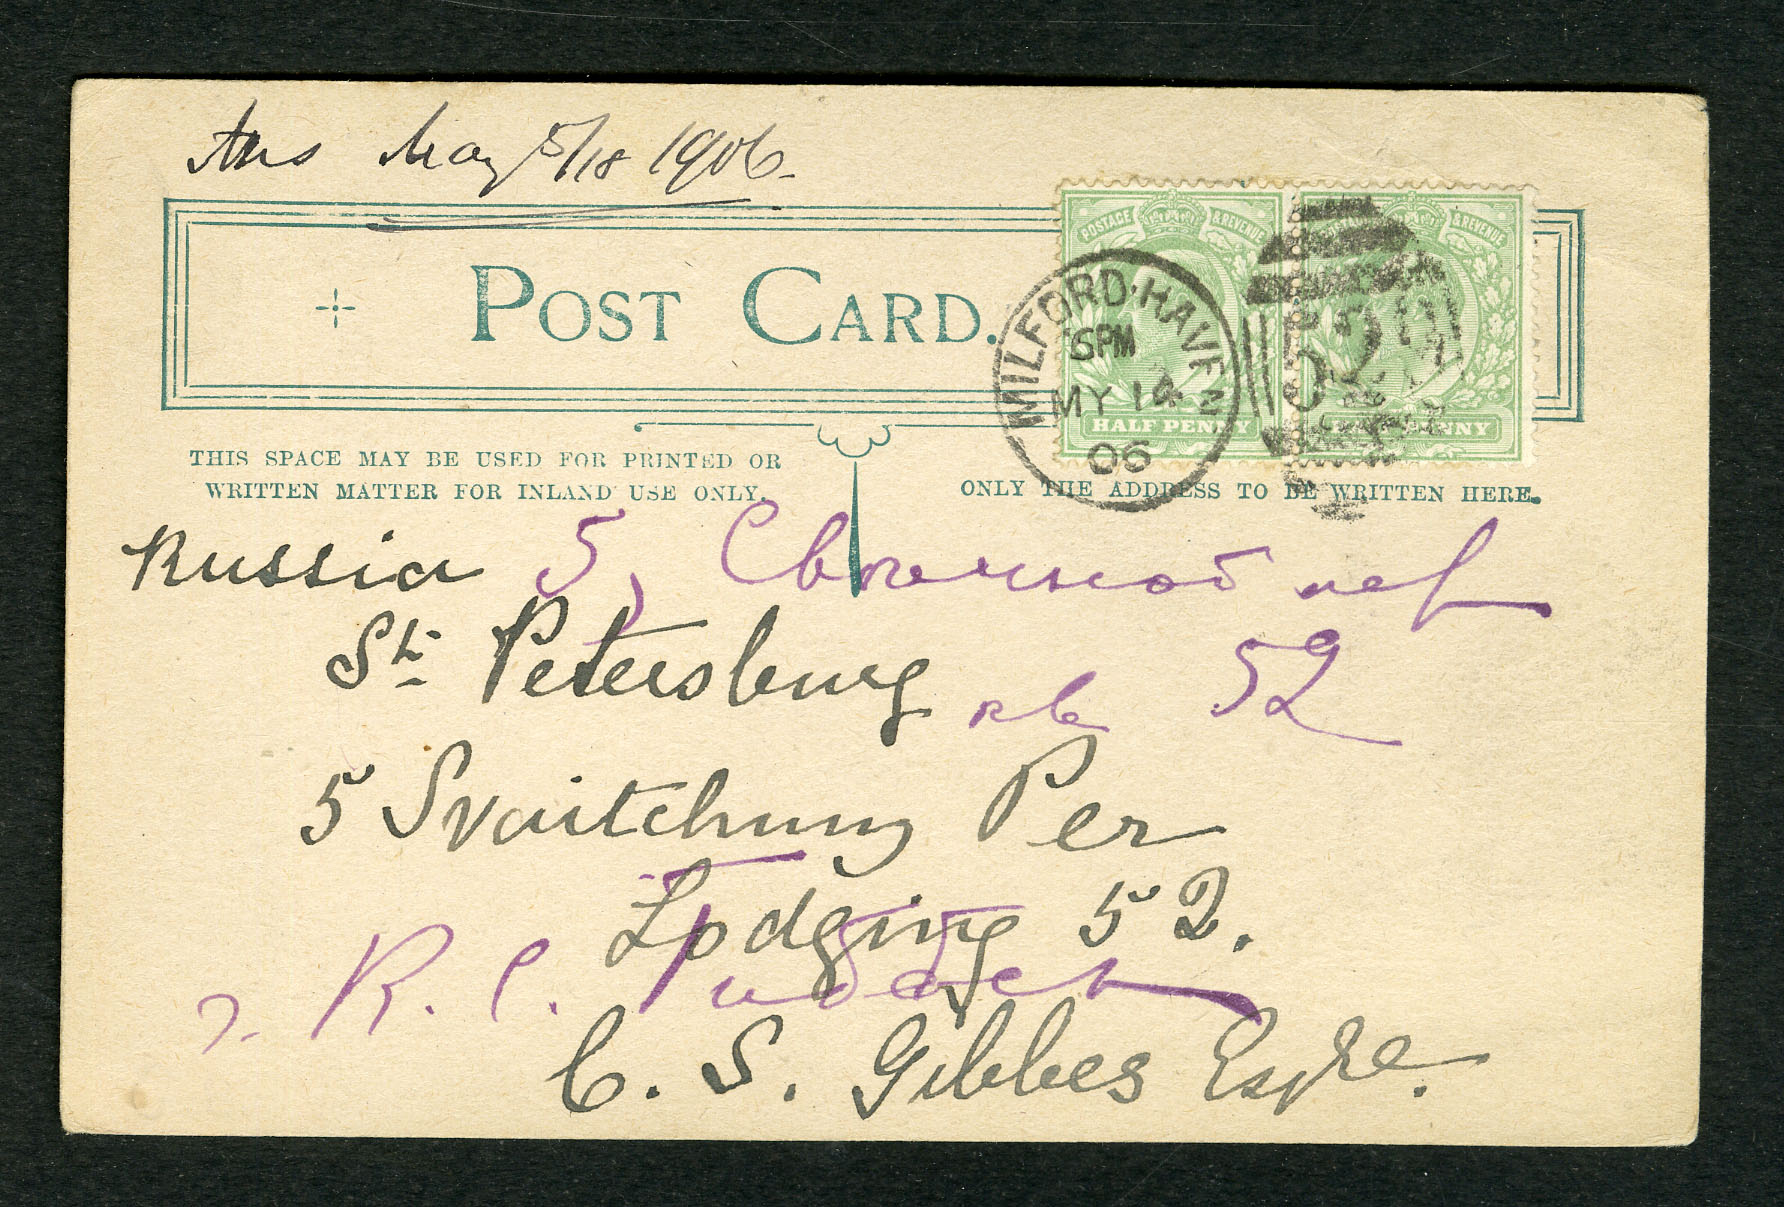 Ans May 5/18 1906.
POSTAGE & REVENUE
& REVENUE
POST CARD.
MILFORD·HAVEN
6PM
MY 14
06
HALF PENNY
PENNY
52
THIS SPACE MAY BE USED FOR PRINTED OR
WRITTEN MATTER FOR INLAND USE ONLY.
ONLY THE ADDRESS TO BE WRITTEN HERE.
Russia 5, пер
St. Petersburg кв 52
5 Svaitchnuy Per
Lodging 52.
г. К. С. Гиббсъ
C. S. Gibbes Esqre.